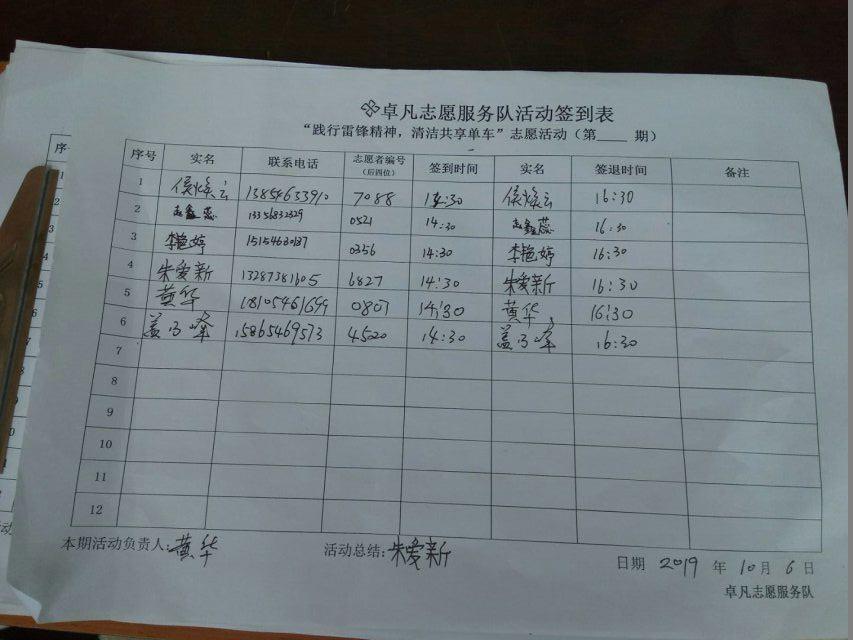 卓凡志愿服务队活动签到表
“践行雷锋精神，清洁共享单车”志愿活动（第____期）
序号 实名 联系电话 志愿者编号（后四位） 签到时间 实名 签退时间 备注
1 侯焕云 13854633910 7088 14:30 侯焕云 16:30
2 孟鑫蕊 13356832329 0521 14:30 孟鑫蕊 16:30
3 李艳婷 15154630137 0356 14:30 李艳婷 16:30
4 朱爱新 13287381605 6827 14:30 朱爱新 16:30
5 黄华 18105461699 0807 14:30 黄华 16:30
6 15865469573 4520 14:30 16:30
7
8
9
10
11
12
本期活动负责人:黄华 活动总结:朱爱新 日期 2019 年 10 月 6 日
卓凡志愿服务队